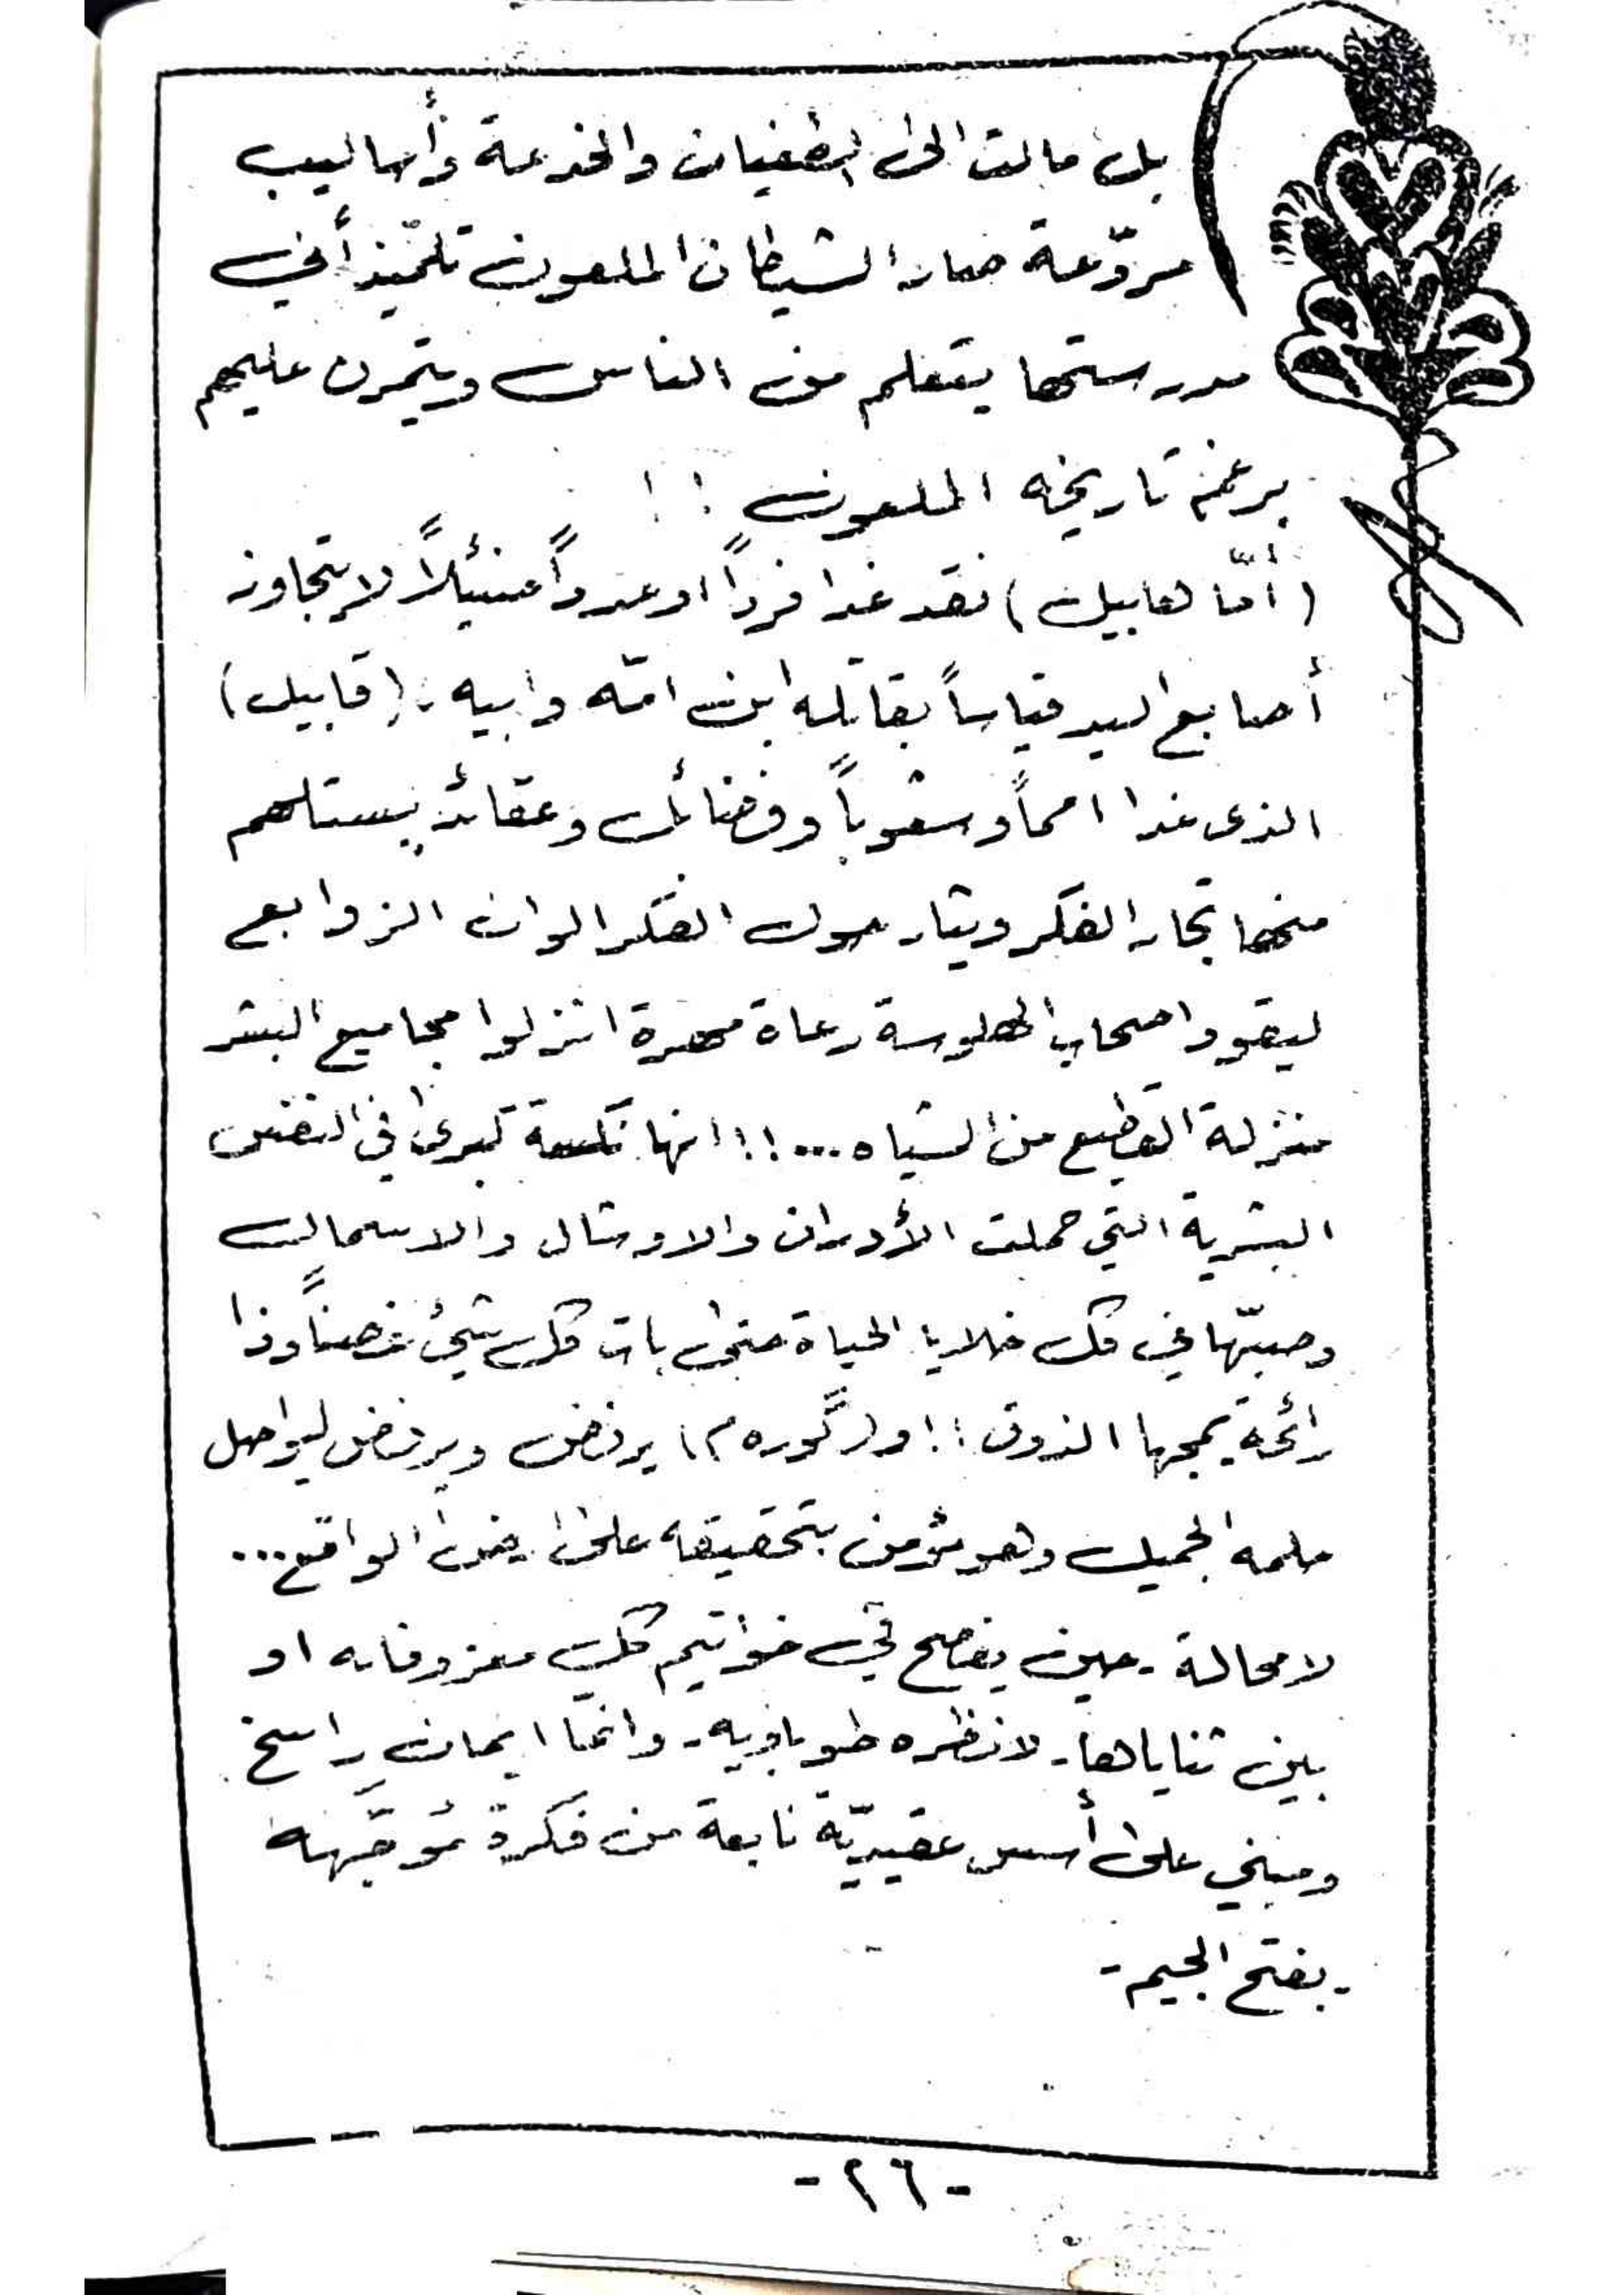 بل مالت الى الطغيان والخدعة وأساليب
مروّعة صار الشيطان الملعون تلميذاً في
مدرستها يتعلم من الناس ويتمرن عليهم
برغم تاريخه الملعون !!
(أمّا هابيل) فقد غدا فرداً او عدداً ضئيلاً لا يتجاوز
أصابع اليد قياساً بقاتله ابن امّه وابيه . (قابيل)
الذى غدا امماً وشعوباً وفضائل وعقائد يستلهم
منها تجار الفكر ويثار حول الفكر الوان الزوابع
ليقود اصحاب الهلوسة رعاة مهرة انزلوا مجاميع البشر
منزلة القطيع من الشياه...!! انها نكسة كبرى في النفس
البشرية التي حملت الأدران والاوشال والاسمال
وصبتّها في كل خلايا الحياة حتى بات كل شيْ عفناً وذا
رائحة يمجها الذوق !! و(گوره م) يرفض ويرفض ليواصل
حلمه الجميل وهو مؤمن بتحقيقه على ارض الواقع...
لا محالة - حين يفصح في خواتيم كل معزوفاته او
بين ثناياها - لا نظره طوباويه - وانما ايمان راسخ
ومبني على أسس عقيديّة نابعة من فكرة مُوجَّهه
- بفتح الجيم -
- ٢٦ -